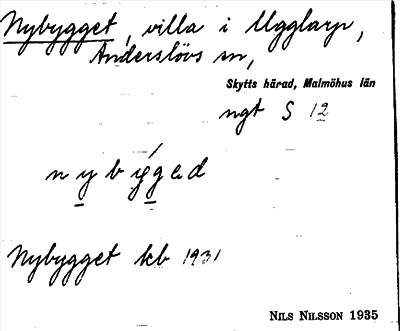 Nybygget, villa i Ugglarp,
Anderslövs sn,
Skytts härad, Malmöhus län
ngt S 12
nybýgəd
Nybygget kb 1931
NILS NILSSON 1935